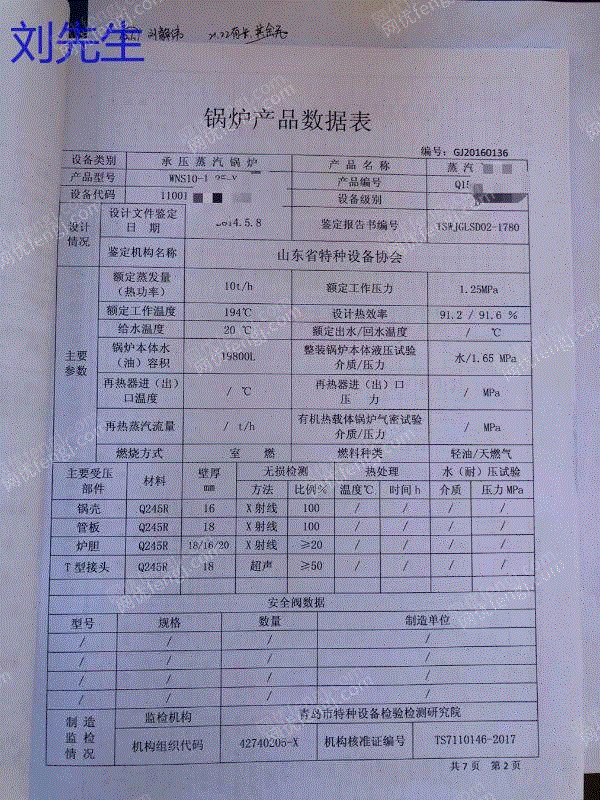 刘先生
锅炉产品数据表
编号：GJ20160136
设备类别 承压蒸汽锅炉 产品名称 蒸汽
产品型号 WNS10-1.25- 产品编号 Q15
设备代码 11001 设备级别
设计情况 设计文件鉴定日期 2014.5.8 鉴定报告书编号 TSWJGLSD02-1780
鉴定机构名称 山东省特种设备协会
主要参数 额定蒸发量（热功率） 10t/h 额定工作压力 1.25MPa
额定工作温度 194℃ 设计热效率 91.2 / 91.6 %
给水温度 20 ℃ 额定出水/回水温度 / ℃
锅炉本体水（油）容积 19800L 整装锅炉本体液压试验介质/压力 水/1.65 MPa
再热器进（出）口温度 / ℃ 再热器进（出）口压力 / MPa
再热蒸汽流量 / t/h 有机热载体锅炉气密试验介质/压力 / MPa
燃烧方式 室燃 燃料种类 轻油/天燃气
主要受压部件 材料 壁厚mm 无损检测 热处理 水（耐）压试验
方法 比例% 温度℃ 时间h 介质 压力MPa
锅壳 Q245R 16 X射线 100 / / / /
管板 Q245R 18 X射线 100 / / / /
炉胆 Q245R 18/16/20 X射线 ≥20 / / / /
T型接头 Q245R 18 超声 ≥50 / / / /
安全阀数据
型号 规格 数量 制造单位
/ / / /
/ / / /
/ / / /
/ / / /
制造监检情况 监检机构 青岛市特种设备检验检测研究院
机构组织代码 42740205-X 机构核准证编号 TS7110146-2017
共7页 第2页